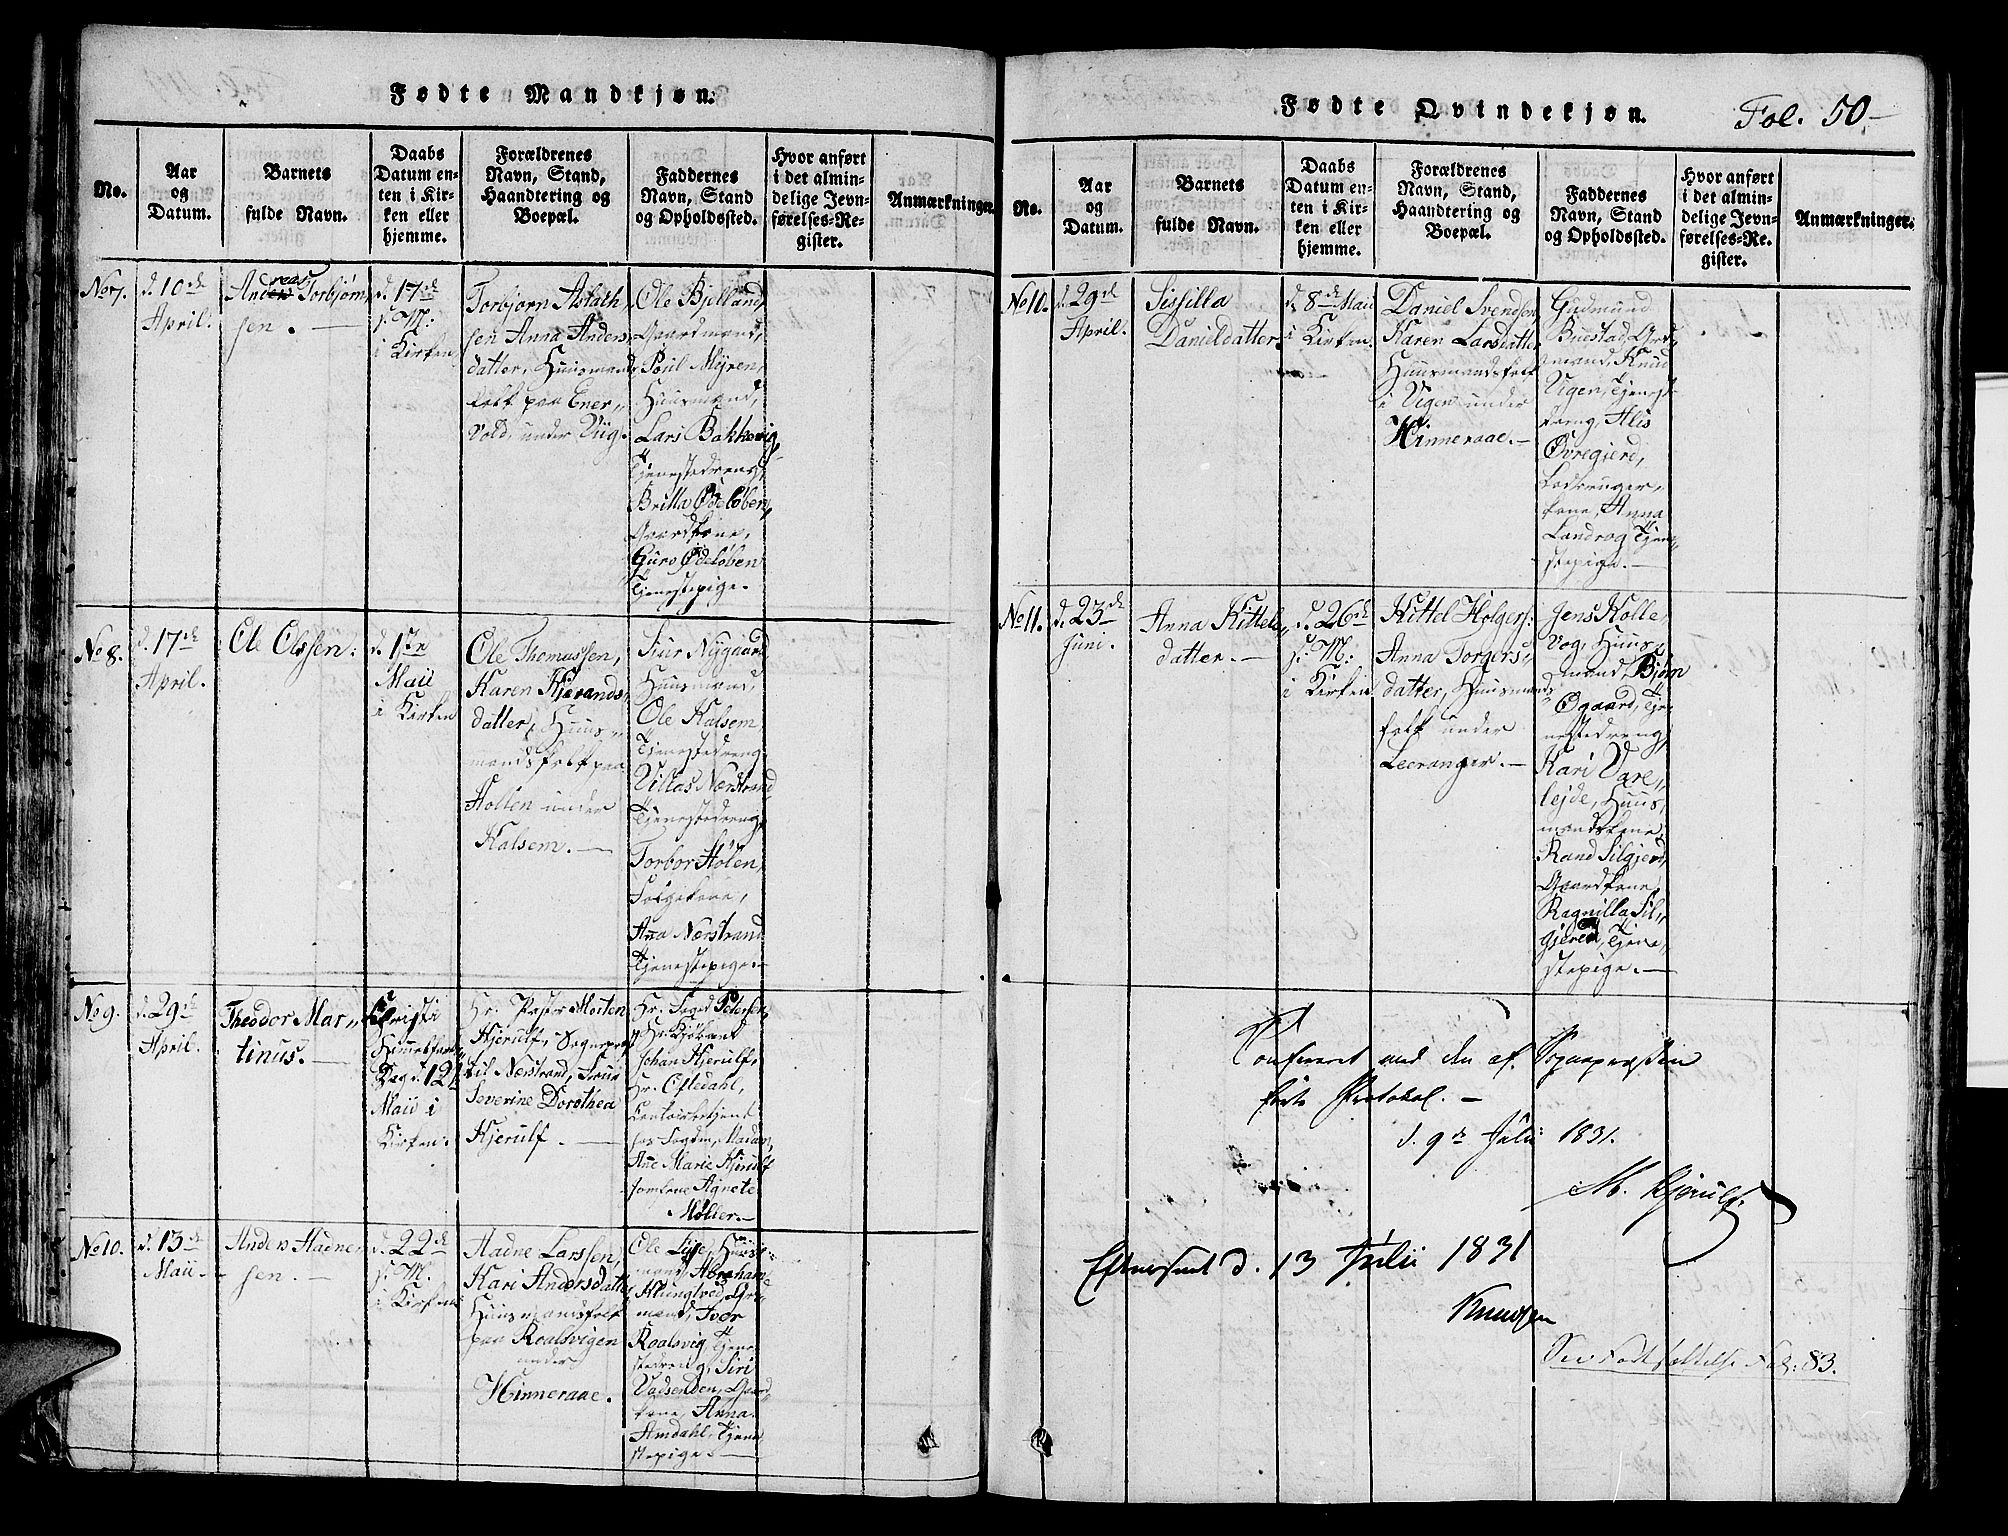 Fødte Mandkjøn.
No.
Aar
og
Datum.
Barnets
fulde Navn.
Daabs
Datum en-
ten i Kir-
ken eller
hjemme.
Forældrenes
Navn, Stand,
Haandtering og
Boepæl.
Faddernes
Navn, Stand
og Opholdssted.
Hvor anført
i det almin-
delige Jevn-
førelses-Re-
gister.
Anmærkninger.
No 7.
d. 10de
April.
Andreas Torbjørn
sen.
d. 17de
s. M:
i Kirken
Torbjørn Aslach
sen Anna Anders
datter, Huusmands
folk paa Ener„
vold, under Viig.
Ole Bjelland,
Gaardmand,
Poul Myren,
Huusmand,
Lars Bakkevig,
Tjenestedreng,
Britta Ødeløben,
Gaardkone,
Guro Ødeløben
Tjenestepige.
No 8.
d. 17de
April.
Ole Olssen.
d. 1ste
Maii
i Kirken
Ole Thomassen,
Karen Kjerands„
datter, Huus„
mandsfolk paa
Hollen under
Kalsem.
Siur Nygaard
Huusmand,
Ole Kalsem
Tjenestedreng
Villas Nærstrand
Tjenestedreng,
Torbor Hølen,
Anna Nærstrand
Tjenestepige.
No 9.
d. 29de
April.
Theodor Mar„
tinus.
Christi
Himmelfarts„
Dag d. 12te
Maii i
Kirken.
Hr. Pastor Morten
Kjerulf, Sognepræst
til Nærstrand, Frue
Severine Dorothea
Kjerulf.
Hr. Foged Petersen,
Johan Kjerulf,
Hr. Oftedahl,
Contoirbetjent
hos Fogden, Madam
Ane Marie Kjerulf
Jomfrue Agnete
Møller.
No 10.
d. 13de
Maii.
Anders Aadne
sen.
d. 22de
s. M.
i Kirken
Aadne Larssen,
Kari Andersdatter
Huusmandsfolk
paa Roalsvigen
under
Hinneraae.
Ole Lye, Huus„
mand, Abraham
Klungtved, Gr„
mand, Iver
Roalsvig, Tjene„
stedreng, Siri
Vadsenden, Gaard„
kone, Anna
Amdahl, Tjene
stepige.
Fødte Qvindekjøn.
Fol. 50
No.
Aar
og
Datum.
Barnets
fulde Navn.
Daabs
Datum en-
ten i Kir-
ken eller
hjemme.
Forældrenes
Navn, Stand,
Haandtering og
Boepæl.
Faddernes
Navn, Stand
og Opholdssted.
Hvor anført
i det almin-
delige Jevn-
førelses-Re-
gister.
Anmærkninger.
No 10.
d. 29de
April.
Sissilla
Danieldatter.
d. 8de Maii
i Kirken.
Daniel Svendsen,
Karen Larsdatter,
Huusmandsfolk
i Vigen under
Hinneraae.
Gudmund
Buestad, Grd„
mand, Knud
Vigen, Tjeneste
dreng, Alis
Øvregjerd,
Ladbruger„
kone, Anna
Landrog Tjen„
stepige.
No 11.
d. 23de
Juni.
Anna Kittels„
datter.
d. 26de
s. M:
i Kirken
Kittel Holgers:
Anna Torgers„
datter, Huusmands
folk under
Leeranger.
Jens Holle„
vog, Huus„
mand, Bjørn
Øgaard, Tje„
nestedreng,
Kari Vare„
lejde, Huus„
mandskone,
Rand Silgjerd,
Gaardkone,
Ragnilla Sil„
gjerd, Tjene„
stepige.
Confereret med den af Sognepræsten
førte Protokol.
d. 9de Julii 1831.
M. Kjerulf.
Efterseet d. 13 Julii 1831
Knudsen
See Fortsættelse Fol: 83.